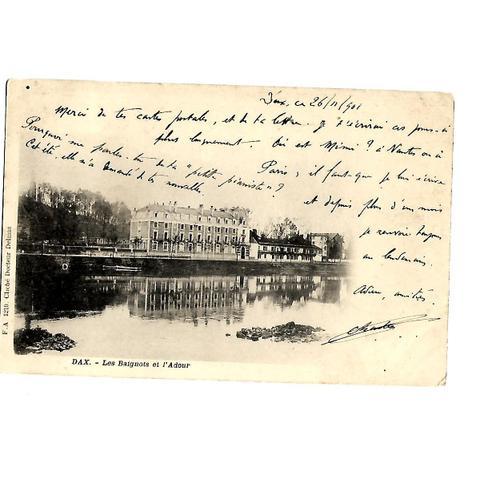 Dax, ce 26/11/901
Merci de tes cartes postales, et de ta lettre. Je t'écrirai ces jours-ci
plus longuement. Où est Mimi ? à Nantes ou à
Paris, il faut que je lui écrive
et depuis plus d'un mois
je renvoie toujours
au lendemain.
Adieu, amitiés,
Charles
Pourquoi me parles-tu de la "petite pianiste" ?
Cet été, elle m'a demandé de tes nouvelles.
F.A 1219 Cliché Docteur Delmas
DAX. - Les Baignots et l'Adour